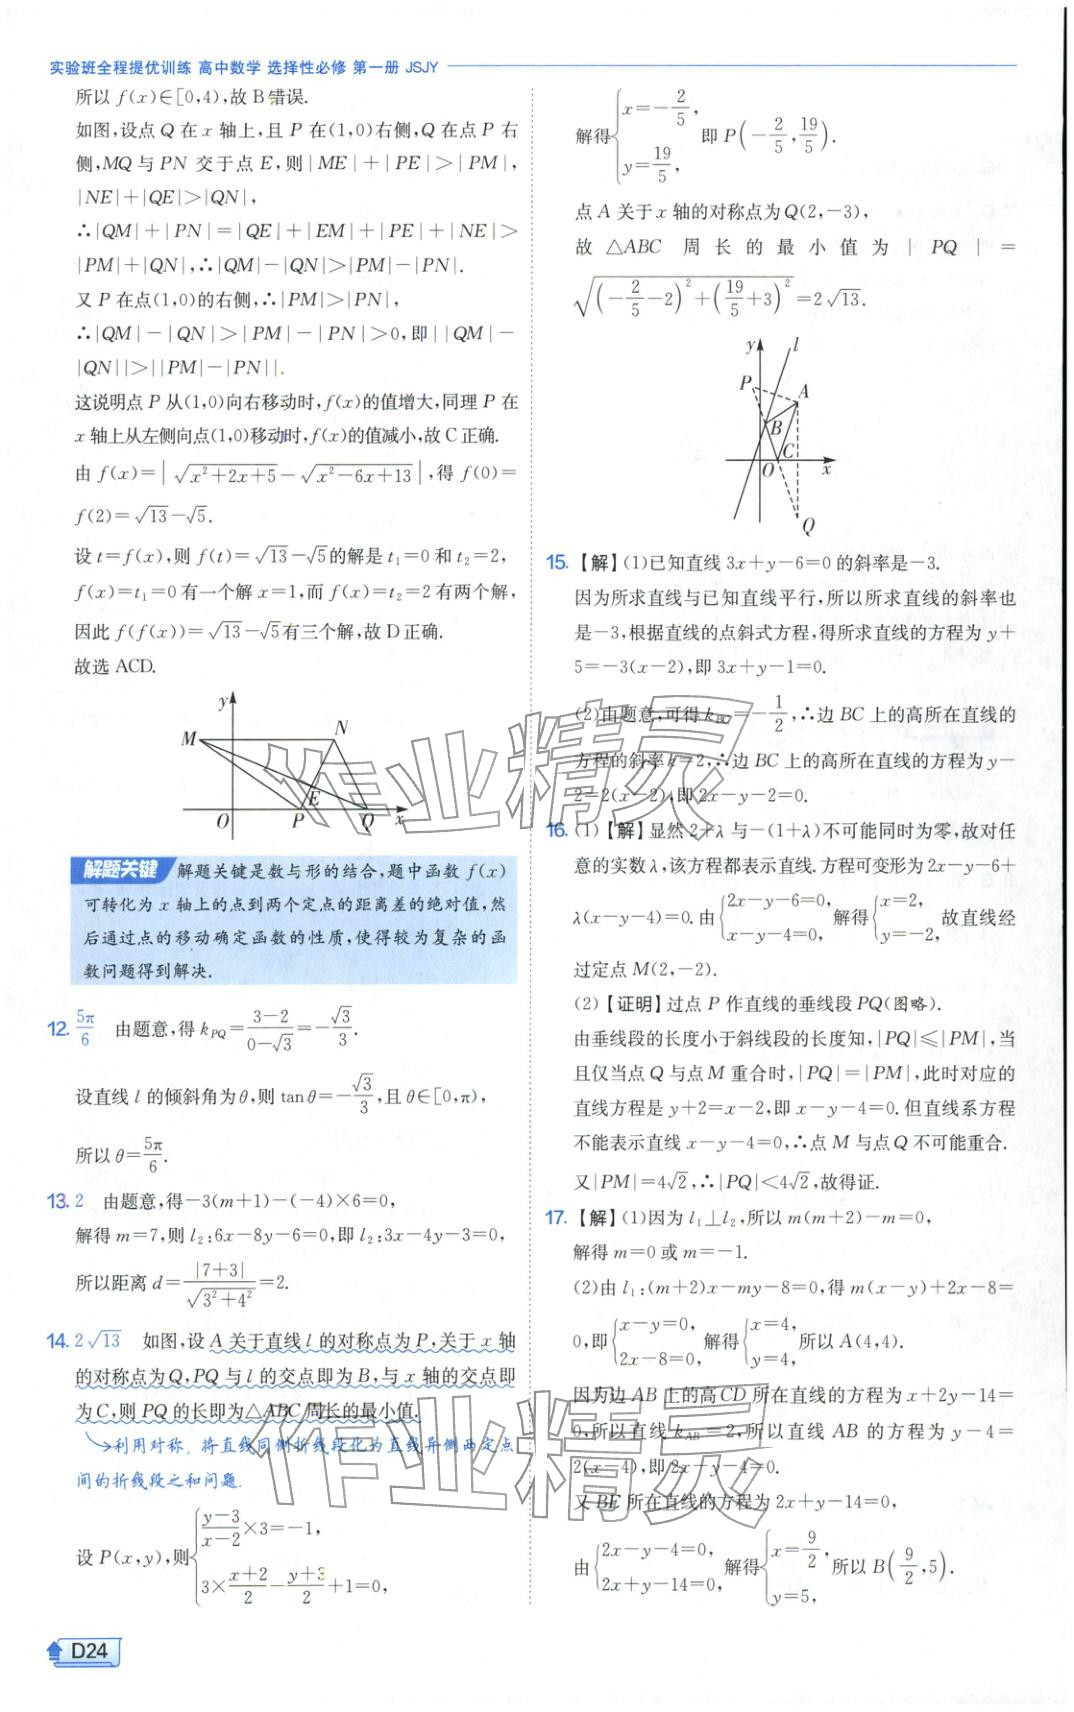 实验班全程提优训练 高中数学 选择性必修 第一册 JSJY
所以 f(x)∈[0,4),故 B 错误.
如图,设点 Q 在 x 轴上,且 P 在(1,0)右侧,Q 在点 P 右
侧,MQ 与 PN 交于点 E,则|ME|+|PE|>|PM|,
|NE|+|QE|>|QN|,
∴|QM|+|PN|=|QE|+|EM|+|PE|+|NE|>
|PM|+|QN|,∴|QM|-|QN|>|PM|-|PN|.
又 P 在点(1,0)的右侧,∴|PM|>|PN|,
∴|QM|-|QN|>|PM|-|PN|>0,即||QM|-
|QN||>||PM|-|PN||.
这说明点 P 从(1,0)向右移动时,f(x)的值增大,同理 P 在
x 轴上从左侧向点(1,0)移动时,f(x)的值减小,故 C 正确.
由 f(x)=|√(x²+2x+5)-√(x²-6x+13)|,得 f(0)=
f(2)=√13-√5.
设 t=f(x),则 f(t)=√13-√5的解是 t₁=0 和 t₂=2,
f(x)=t₁=0 有一个解 x=1,而 f(x)=t₂=2 有两个解,
因此 f(f(x))=√13-√5有三个解,故 D 正确.
故选 ACD.
y
M N
E
O P Q x
解题关键 解题关键是数与形的结合,题中函数 f(x)
可转化为 x 轴上的点到两个定点的距离差的绝对值,然
后通过点的移动确定函数的性质,使得较为复杂的函
数问题得到解决.
12. 5π/6 由题意,得 k_PQ=(3-2)/(0-√3)=-√3/3.
设直线 l 的倾斜角为 θ,则 tan θ=-√3/3,且 θ∈[0,π),
所以 θ=5π/6.
13. 2 由题意,得-3(m+1)-(-4)×6=0,
解得 m=7,则 l₂:6x-8y-6=0,即 l₂:3x-4y-3=0,
所以距离 d=|7+3|/√(3²+4²)=2.
14. 2√13 如图,设 A 关于直线 l 的对称点为 P,关于 x 轴
的对称点为 Q,PQ 与 l 的交点即为 B,与 x 轴的交点即
为 C,则 PQ 的长即为△ABC 周长的最小值.
→利用对称,将直线同侧折线段化为直线异侧两定点
间的折线段之和问题.
设 P(x,y),则{(y-3)/(x-2)×3=-1,
3×(x+2)/2-(y+3)/2+1=0,
D24
解得{x=-2/5, y=19/5, 即 P(-2/5,19/5).
点 A 关于 x 轴的对称点为 Q(2,-3),
故 △ABC 周长的最小值为 |PQ| =
√((-2/5-2)²+(19/5+3)²)=2√13.
y l
P A
B
C
O x
Q
15. 【解】(1)已知直线 3x+y-6=0 的斜率是-3.
因为所求直线与已知直线平行,所以所求直线的斜率也
是-3,根据直线的点斜式方程,得所求直线的方程为 y+
5=-3(x-2),即 3x+y-1=0.
(2)由题意,可得 k_BC=-1/2,∴边 BC 上的高所在直线的
方程的斜率 k=2,∴边 BC 上的高所在直线的方程为 y-
2=2(x-2),即 2x-y-2=0.
16. (1)【解】显然 2+λ 与-(1+λ)不可能同时为零,故对任
意的实数 λ,该方程都表示直线.方程可变形为 2x-y-6+
λ(x-y-4)=0.由{2x-y-6=0, x-y-4=0,解得{x=2, y=-2, 故直线经
过定点 M(2,-2).
(2)【证明】过点 P 作直线的垂线段 PQ(图略).
由垂线段的长度小于斜线段的长度知,|PQ|≤|PM|,当
且仅当点 Q 与点 M 重合时,|PQ|=|PM|,此时对应的
直线方程是 y+2=x-2,即 x-y-4=0.但直线系方程
不能表示直线 x-y-4=0,∴点 M 与点 Q 不可能重合.
又|PM|=4√2,∴|PQ|<4√2,故得证.
17. 【解】(1)因为 l₁⊥l₂,所以 m(m+2)-m=0,
解得 m=0 或 m=-1.
(2)由 l₁:(m+2)x-my-8=0,得 m(x-y)+2x-8=
0,即{x-y=0, 2x-8=0, 解得{x=4, y=4, 所以 A(4,4).
因为边 AB 上的高 CD 所在直线的方程为 x+2y-14=
0,所以直线 k_AB=2,所以直线 AB 的方程为 y-4=
2(x-4),即 2x-y-4=0.
又 BE 所在直线的方程为 2x+y-14=0,
由{2x-y-4=0, 2x+y-14=0, 解得{x=9/2, y=5, 所以 B(9/2,5).
作业精灵
作业精灵